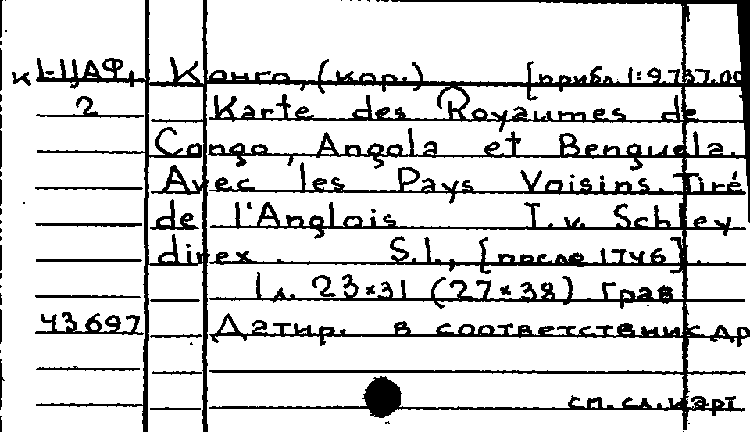 к 1-ЦАФ, Конго, (кор.) [прибл. 1:9.737.00
2 Karte des Royaumes de
Congo, Angola et Benguela.
Avec les Pays Voisins. Tiré
de l'Anglois I.v. Schley
direx. S.l., [после 1746].
1 л. 23×31 (27×38) Грав
43697 Датир. в соответствии с др
см. сл. карт